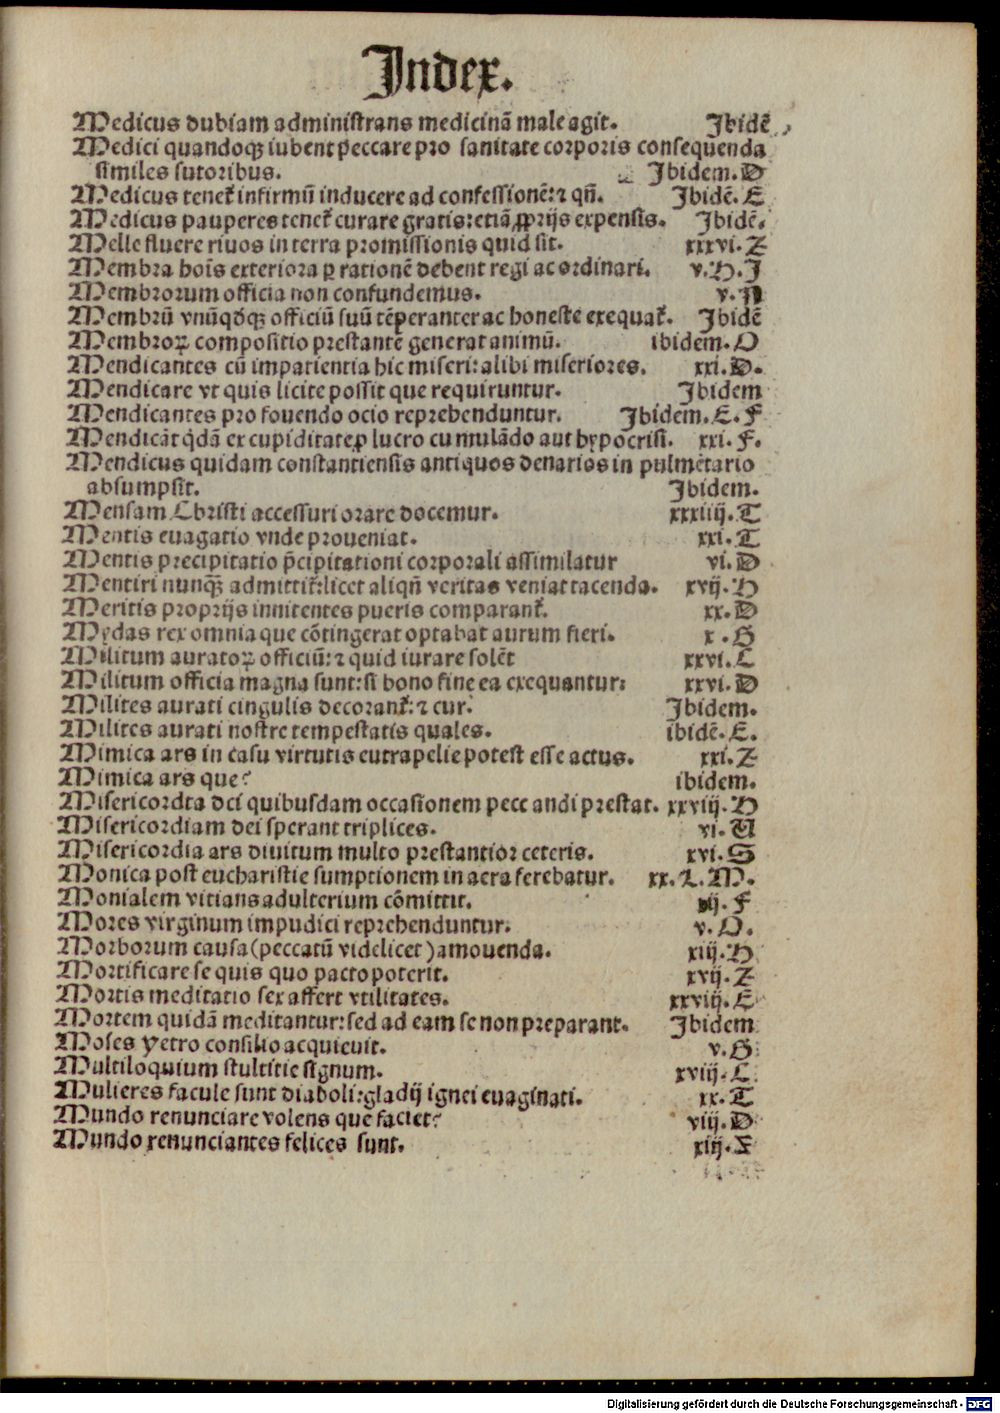 Index.
Medicus dubiam administrans medicinā male agit. Ibidē
Medici quandoqꝫ iubent peccare pro sanitate corporis consequenda
similes sutoribus. Ibidem. D
Medicus tenet̄ infirmū inducere ad confessionē: ⁊ qn̄. Ibidē. E
Medicus pauperes tenet̄ curare gratis: etiā ꝓprijs expensis. Ibidē.
Melle fluere riuos in terra promissionis quid sit. xxxvi. Z
Membra hoīs exteriora ꝑ rationē debent regi ac ordinari. v. H. I
Membrorum officia non confundemus. v. N
Membrū vnūqdqꝫ officiū suū tēperanter ac honeste exequat̄. Ibidē
Membroꝝ compositio prestantē generat animū. ibidem. O
Mendicantes cū impatientia hic miseri: alibi miseriores. xxi. D.
Mendicare vt quis licite possit que requiruntur. Ibidem
Mendicantes pro fouendo ocio reprehenduntur. Ibidem. E. F
Mendicāt qdā ex cupiditate ꝓ lucro cumulādo aut hypocrisi. xxi. F.
Mendicus quidam constantiensis antiquos denarios in pulmētario
absumpsit. Ibidem.
Mensam Christi accessuri orare docemur. xxxiiij. T
Mentis euagatio vnde proueniat. xxi. T
Mentis precipitatio p̄cipitationi corporali assimilatur vi. D
Mentiri nunqꝫ̄ admittit̄: licet aliqn̄ veritas veniat tacenda. xvij. H
Meritis proprijs innitentes pueris comparant̄. xx. D
Mydas rex omnia que cōtingerat optabat aurum fieri. x. G
Militum auratoꝝ officiū: ⁊ quid iurare solēt xxvi. C
Militum officia magna sunt: si bono fine ea exequantur: xxvi. D
Milites aurati cingulis decorant̄: ⁊ cur. Ibidem.
Milites aurati nostre tempestatis quales. ibidē. E.
Mimica ars in casu virtutis eutrapelie potest esse actus. xxi. Z
Mimica ars que? ibidem.
Misericordia dei quibusdam occasionem peccandi prestat. xxviij. H
Misericordiam dei sperant triplices. vi. U
Misericordia ars diuitum multo prestantior ceteris. xvi. S
Monica post eucharistie sumptionem in aera ferebatur. xx. L. M.
Monialem vitians adulterium cōmittit. F
Mores virginum impudici reprehenduntur. v. O.
Morborum causa (peccatū videlicet) amouenda. xiij. H
Mortificare se quis quo pacto poterit. xvij. Z
Mortis meditatio sex affert vtilitates. xxviij. E
Mortem quidā meditantur: sed ad eam se non preparant. Ibidem
Moses yetro consilio acquieuit. v. G
Multiloquium stultitie signum. xviij. C
Mulieres facule sunt diaboli: gladij ignei euaginati. xx. T
Mundo renunciare volens que faciet? viij. D
Mundo renunciantes felices sunt. xiij. F
Digitalisierung gefördert durch die Deutsche Forschungsgemeinschaft - DFG